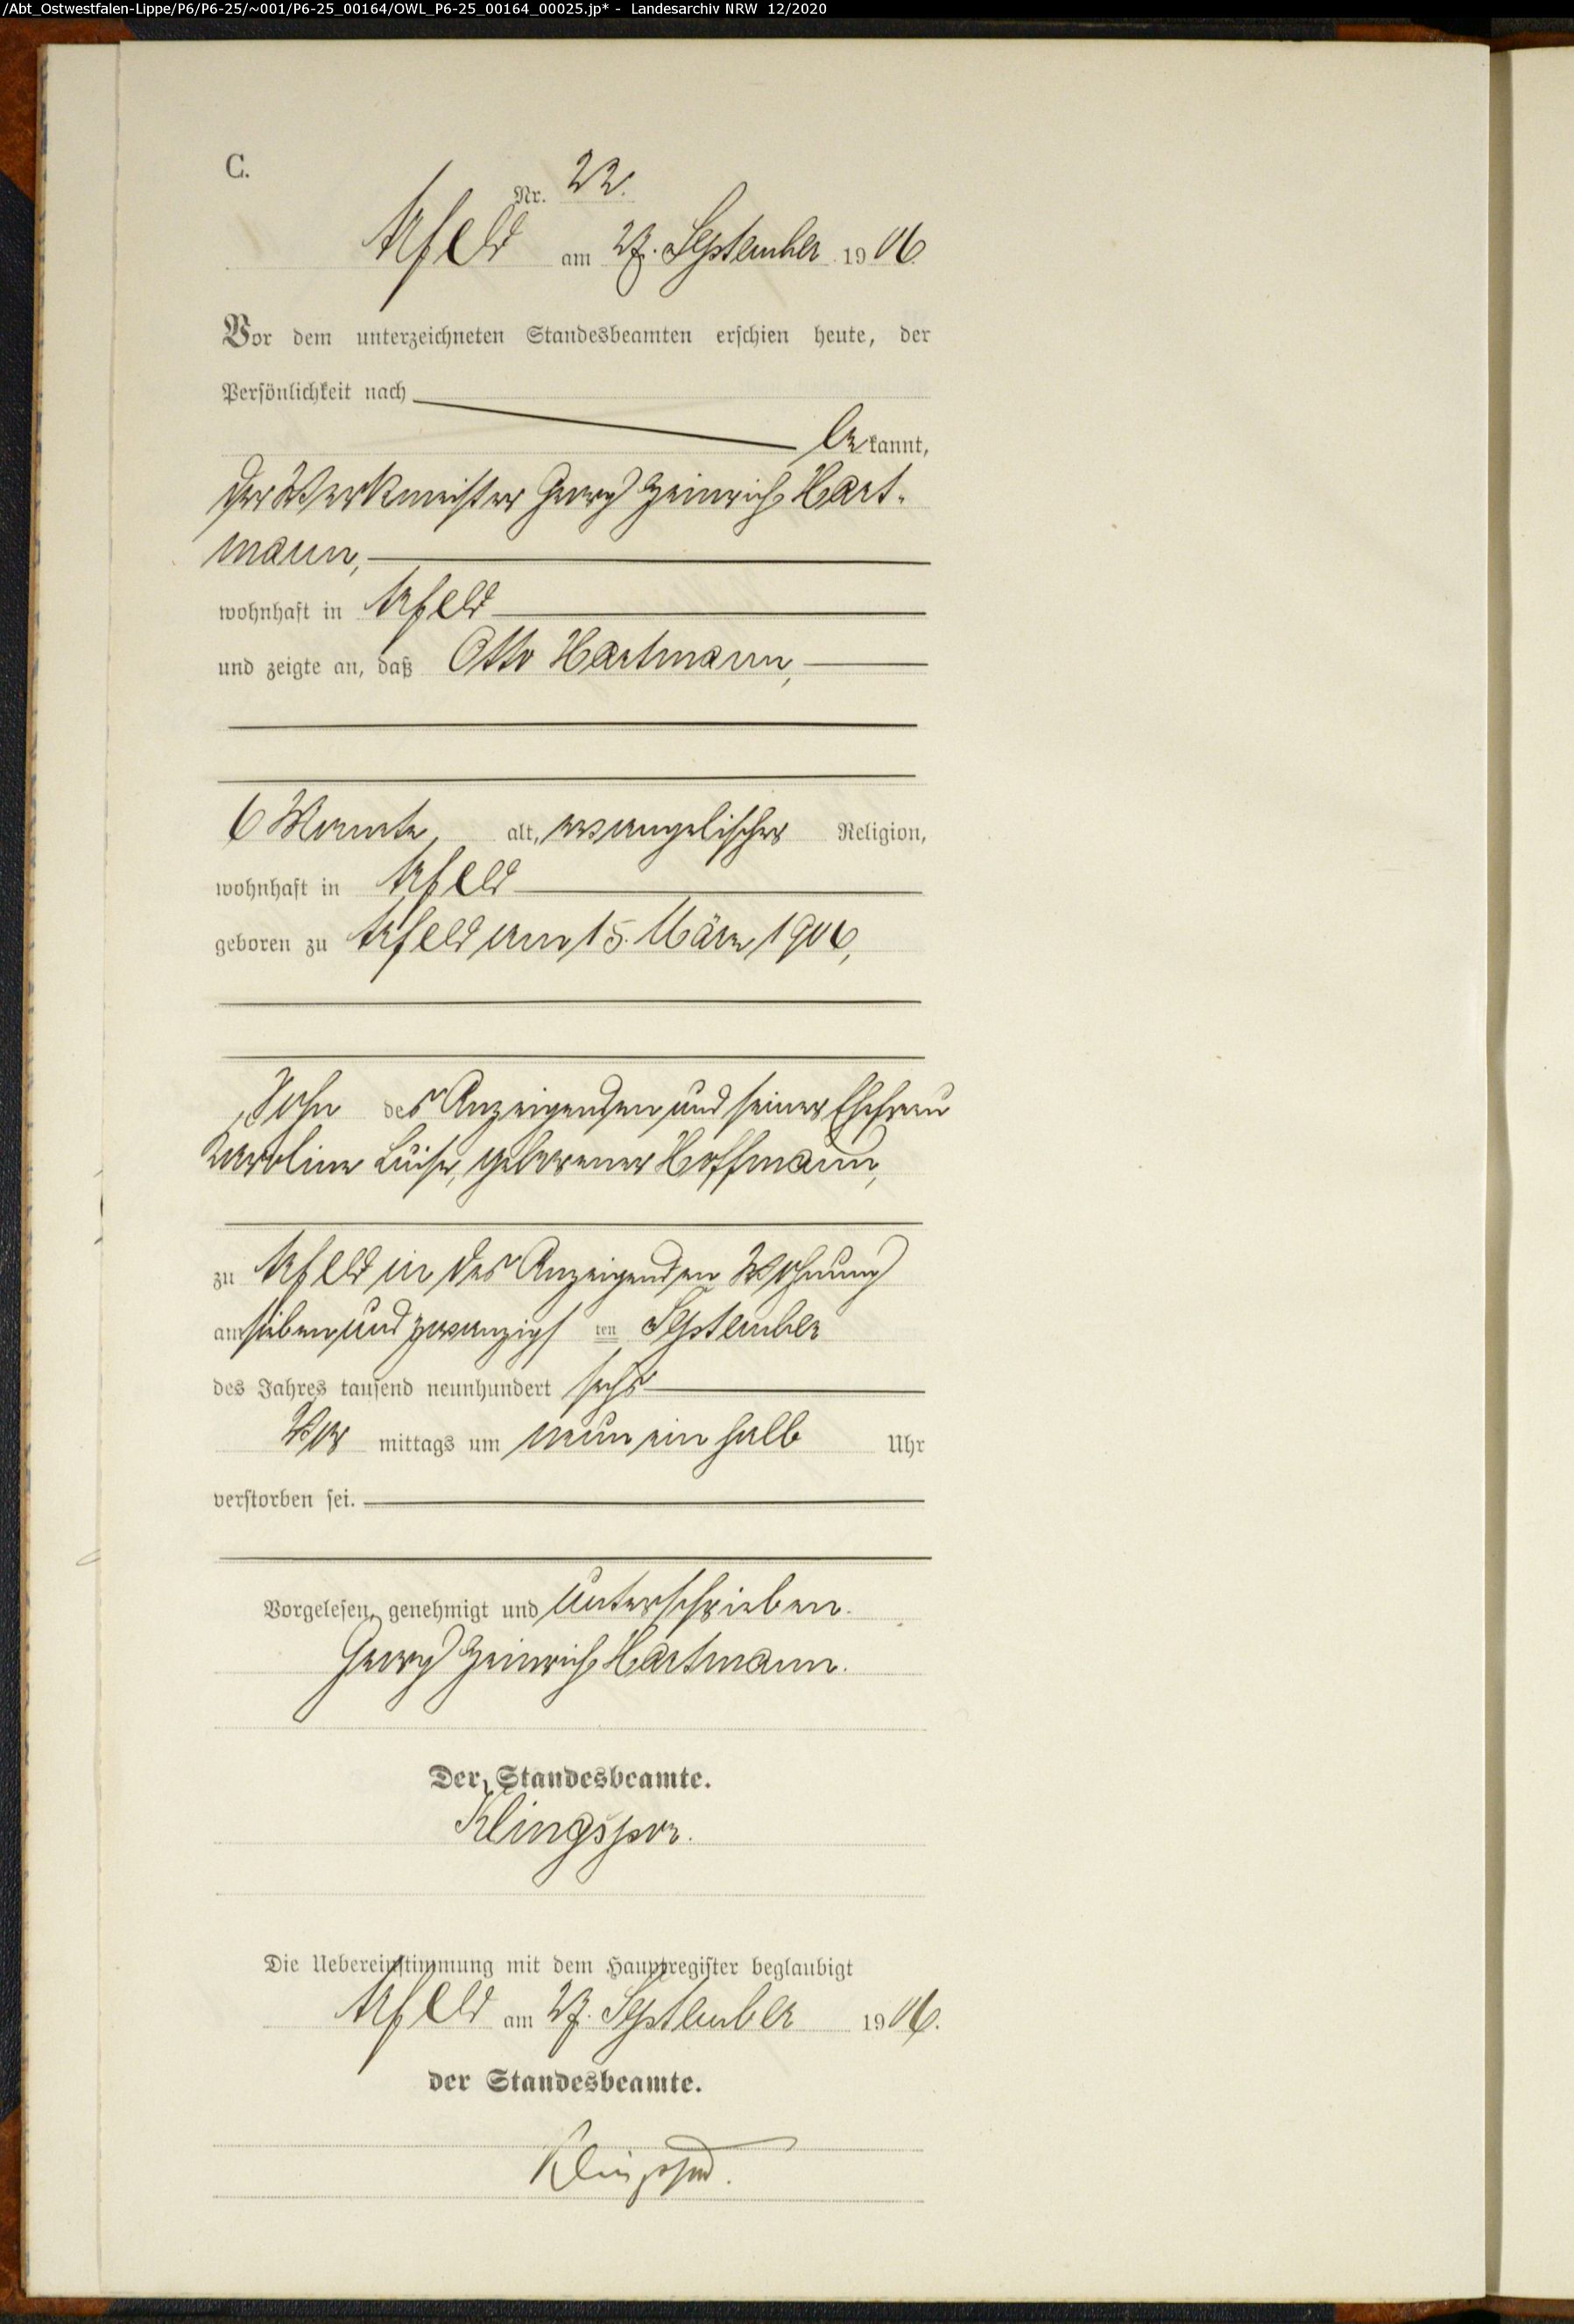 /Abt_Ostwestfalen-Lippe/P6/P6-25/~001/P6-25_00164/OWL_P6-25_00164_00025.jp* - Landesarchiv NRW 12/2020
C.
Nr. 22.
Arfeld am 27. September 1906.
Vor dem unterzeichneten Standesbeamten erschien heute, der
Persönlichkeit nach
bekannt,
der Werkmeister Georg Heinrich Hart-
mann,
wohnhaft in Arfeld
und zeigte an, daß Otto Hartmann,
6 Monate, alt, evangelischer Religion,
wohnhaft in Arfeld
geboren zu Arfeld am 15. März 1906,
Sohn des Anzeigenden und seiner Ehefrau
Karoline Luise, geborener Hoffmann,
zu Arfeld in des Anzeigenden Wohnung
am siebenundzwanzigsten September
des Jahres tausend neunhundert sechs
Vormittags um neun ein halb Uhr
verstorben sei.
Vorgelesen, genehmigt und unterschrieben.
Georg Heinrich Hartmann.
Der Standesbeamte.
Klingspor.
Die Uebereinstimmung mit dem Hauptregister beglaubigt
Arfeld am 27. September 1906.
der Standesbeamte.
Klingspor.